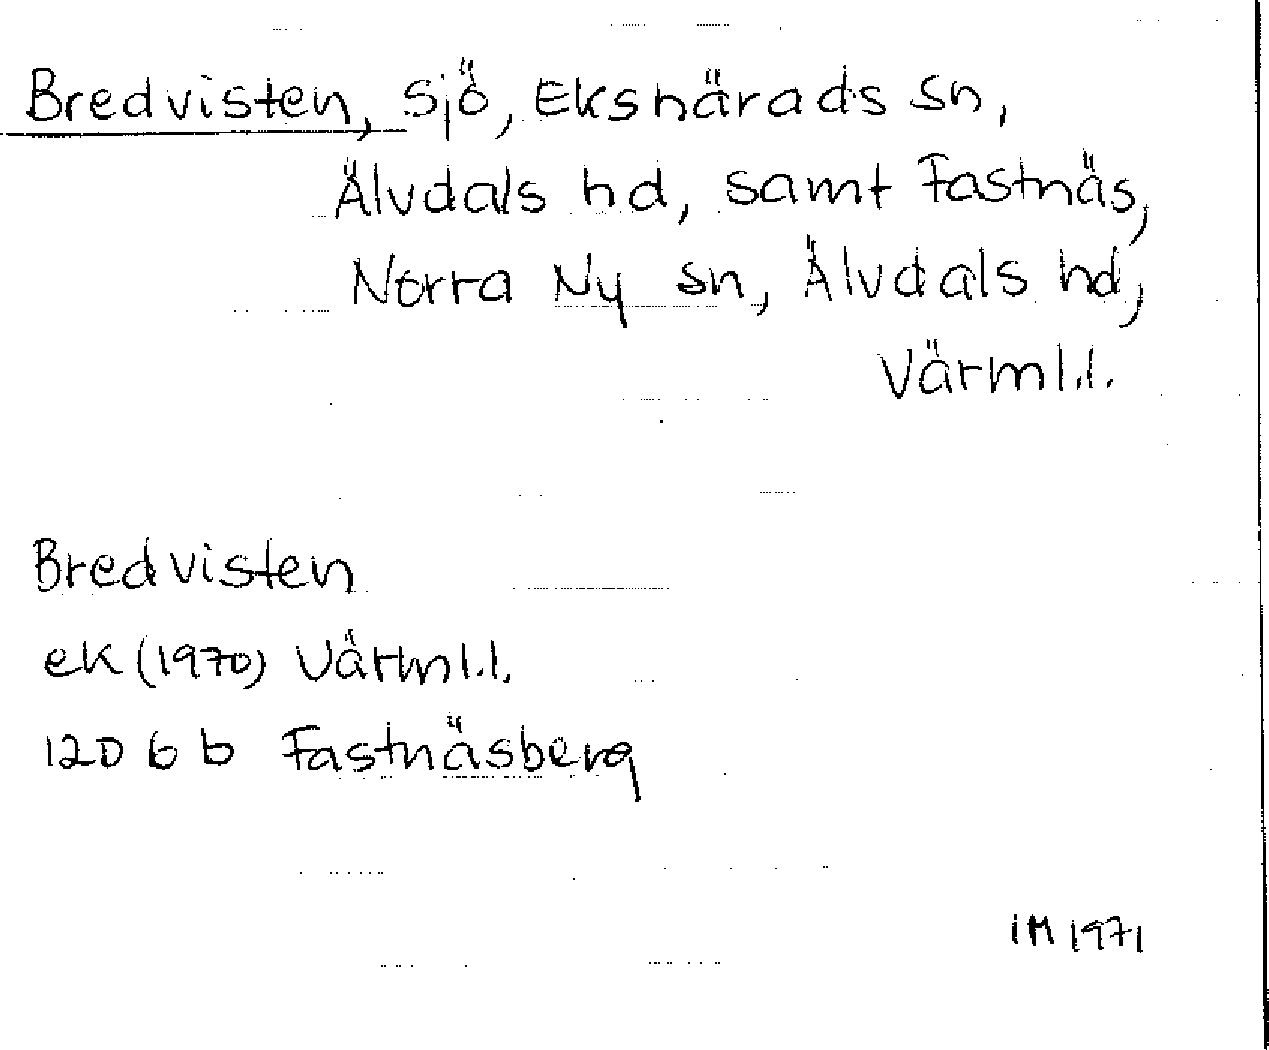 Bredvisten, sjö, Ekshärads sn,
Älvdals hd, samt Fastnäs,
Norra Ny sn, Älvdals hd,
Värml.l.
Bredvisten
ek (1970) Värml.l.
12D 6 b Fastnäsberg
IM 1971